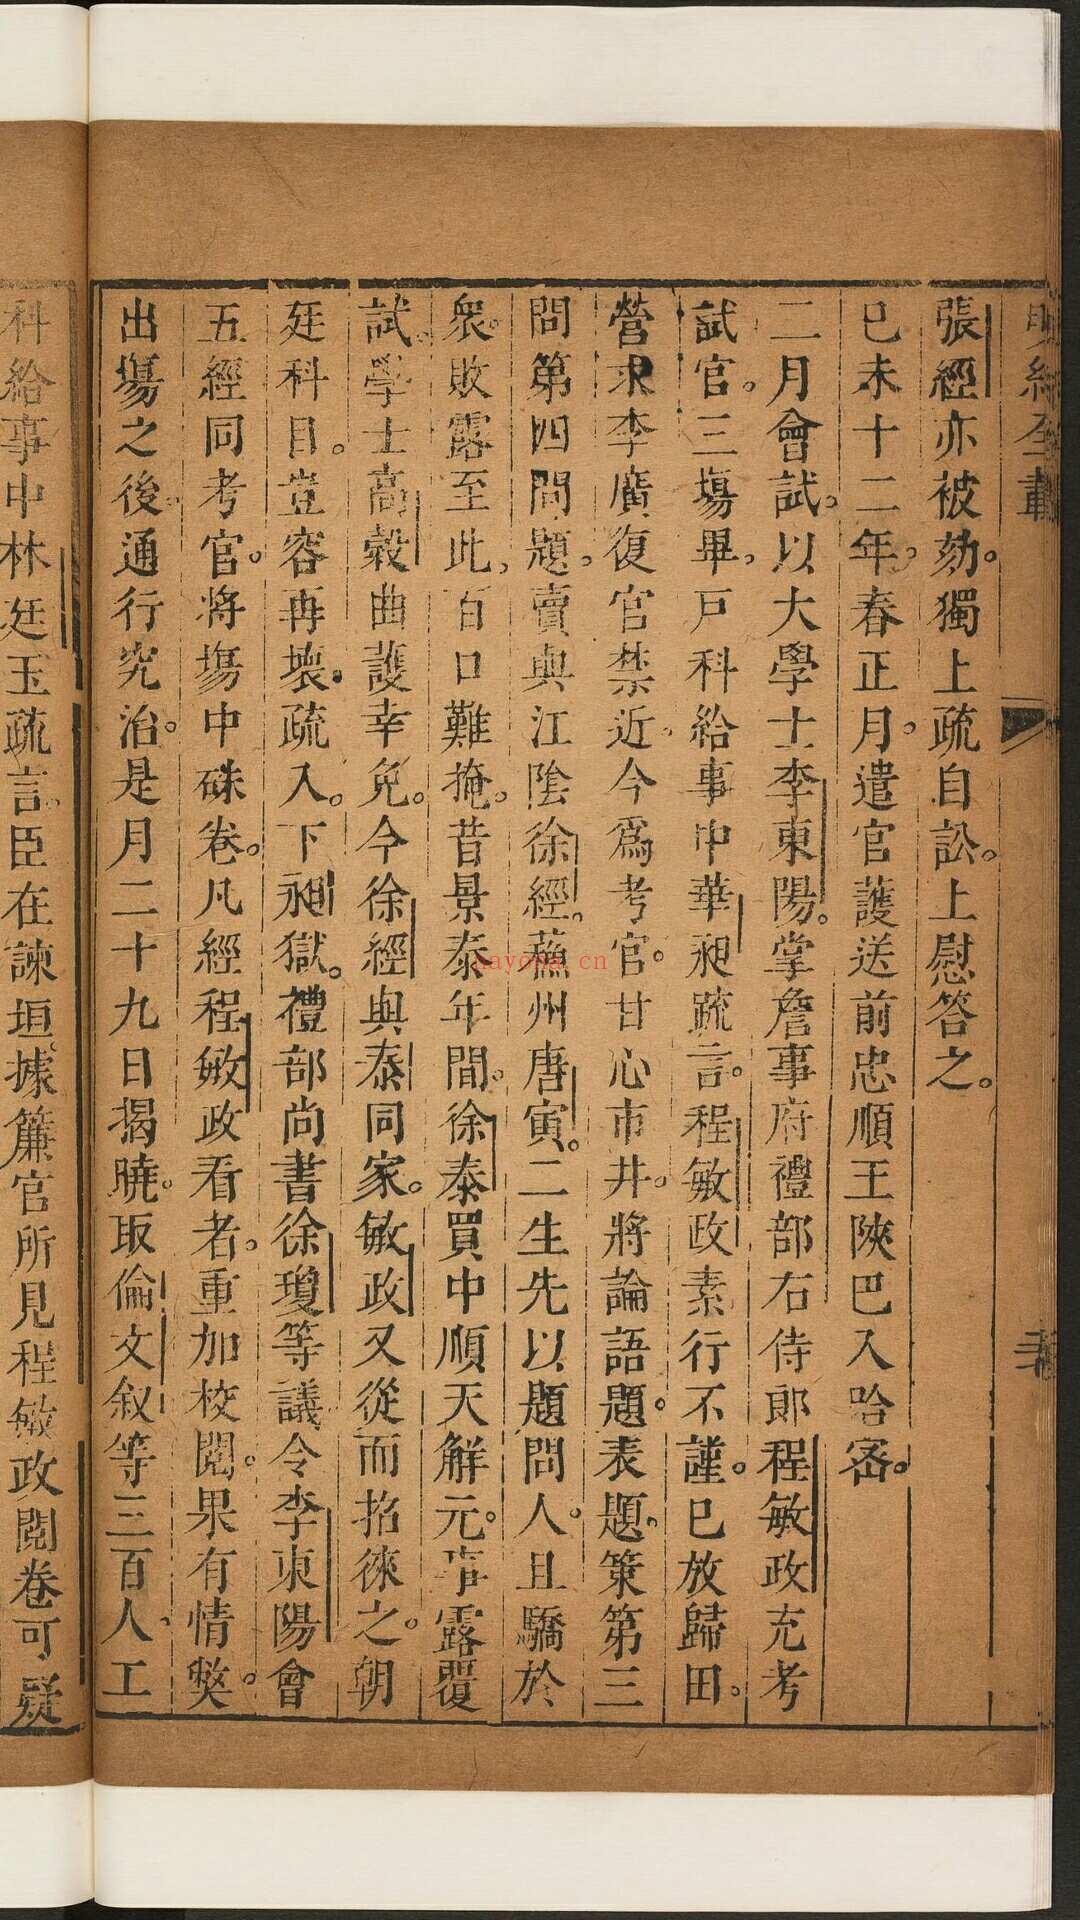 張經亦被劾。獨上疏自訟。上慰答之。
己未十二年。春正月。遣官護送前忠順王陝巴入哈密。
二月會試。以大學士李東陽。掌詹事府禮部右侍郎程敏政充考
試官。三塲畢。戸科給事中華昶疏言。程敏政素行不謹。已放歸田。
營求李廣復官禁近。今爲考官。甘心市井。將論語題。表題。策第三
問第四問題。賣與江陰徐經。蘇州唐寅。二生先以題問人。且驕於
衆。敗露至此。百口難掩。昔景泰年間。徐泰買中順天解元。事露覆
試。學士高穀曲護幸免。今徐經與泰同家。敏政又從而招徠之。朝
廷科目。豈容再壞。疏入。下昶獄。禮部尚書徐瓊等議令李東陽會
五經同考官。將塲中硃卷。凡經程敏政看者。重加校閱。果有情獘。
出塲之後。通行究治。是月二十九日揭曉。取倫文叙等三百人。工
科給事中林廷玉疏言。臣在諫垣。據簾官所見程敏政閱卷可疑
nayona.cn